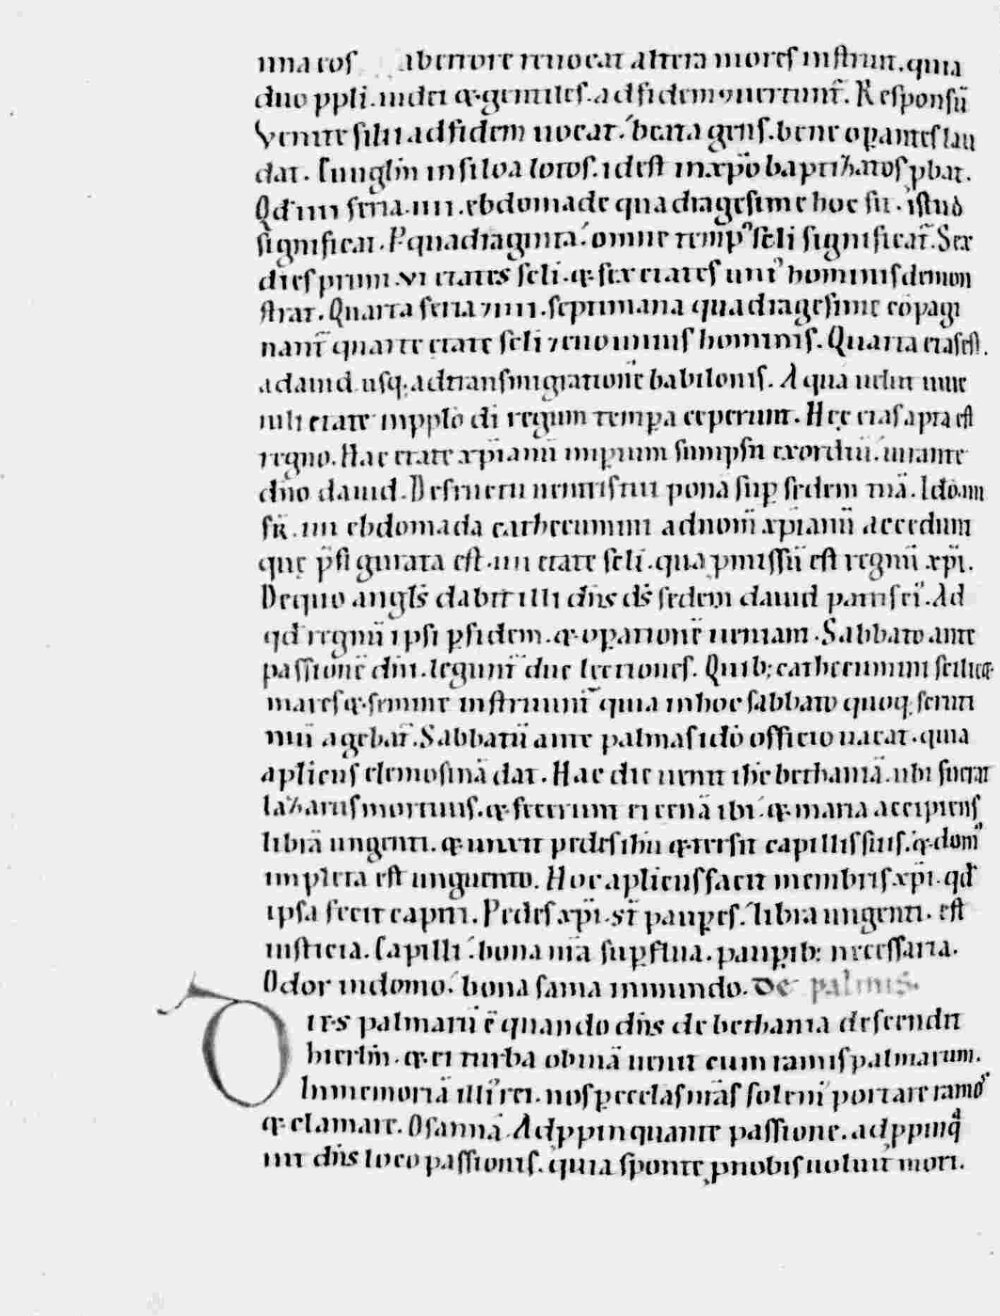 una uos ab errore reuocat altera mores instruit. quia
duo ppli. iudei & gentiles. ad fidem ɔuertunt̄. Responsū
Venite filii ad fidem uocat. beata gens. bene opantes lau
dat. Euuglm̄ in siloa lotos. id est in xp̄o baptizatos ꝓbat.
Qd̄ iiii feria .iiii. ebdomade quadragesime hoc fit. istud
significat. P quadraginta. omne temp' scli significat̄. Sex
dies primi .vi etates scli. & sex etates uni' hominis demon
strat. Quarta feria 7 iiii. septimana quadragesime cōpagi
nant̄ quarte etate scli 7 enoui*n*us hominis. Quarta etas est.
a dauid usq; ad transmigrationē babilonis. A qua uidelicet iuue
nili etate in pplo di regum tempa ceperunt. Hec etas apta est
regno. Hac etate xp̄ianū impium sumpsit exordiū. iurante
dn̄o dauid. De fructu uentris tui ponā sup sedem mā. Ido in
fR̄. iiii ebdomada cathecumini ad nom̄ xp̄ianū accedunt
quę p̄figurata est .iiii etate scli. qua ꝓmissū est regnū xp̄i.
De quo angl̄s dabit illi dn̄s ds̄ sedem dauid patris ei'. Ad
qd regnū ipsi p fidem. & opationē ueniam. Sabbato ante
passionē dn̄i. legunt̄ due lectiones. Quib; cathecumini scilicet
mares & femine instruunt̄ quia in hoc sabbato quoq; scruti
niū agebat̄. Sabbatū ante palmas idō officio uacat. quia
aplicus elemosinā dat. Hac die uenit ihc̄ bethaniā. ubi fuerat
lazarus mortuus. & fecerunt ei cenā ibi. & maria accipiens
librā ungenti. & unxit pedes ihū & tersit capillis suis. & dom'
impleta est unguento. Hoc aplicus facit membris xp̄i. qd̄
ipsa fecit capiti. Pedes xp̄i. st̄ paupes. libra ungenti. est
iusticia. Capilli. bona nr̄a supflua. paupib; necessaria.
Odor in domo. bona fama in mundo. De palmis.
Dies palmarū ē quando dn̄s de bethania descendit
hierlm̄. & ei turba obuiā uenit cum ramis palmarum.
In memoriā illi' rei. nos p ecclasnr̄as solem' portare ramos
& clamare. Osanna. Adppinquante passione. adppinq
uit dn̄s loco passionis. quia sponte ꝓ nobis uoluit mori.